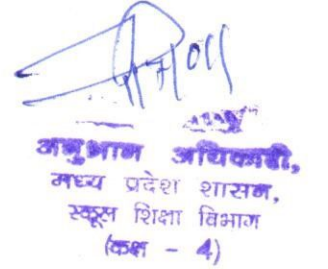 अनुभाग अधिकारी,
मध्य प्रदेश शासन,
स्कूल शिक्षा विभाग
(कक्ष - 4)